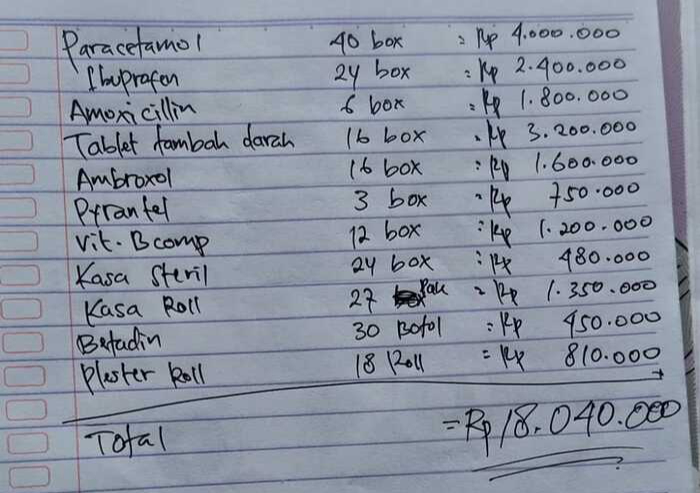 Paracetamol 40 box = Rp 4.000.000
Ibuprofen 24 box = Rp 2.400.000
Amoxicillin 6 box = Rp 1.800.000
Tablet tambah darah 16 box = Rp 3.200.000
Ambroxol 16 box = Rp 1.600.000
Pyrantel 3 box = Rp 750.000
Vit. B comp 12 box = Rp 1.200.000
Kasa Steril 24 box = Rp 480.000
Kasa Roll 27 Pak = Rp 1.350.000
Betadin 30 Botol = Rp 450.000
Plester Roll 18 Roll = Rp 810.000
Total = Rp 18.040.000